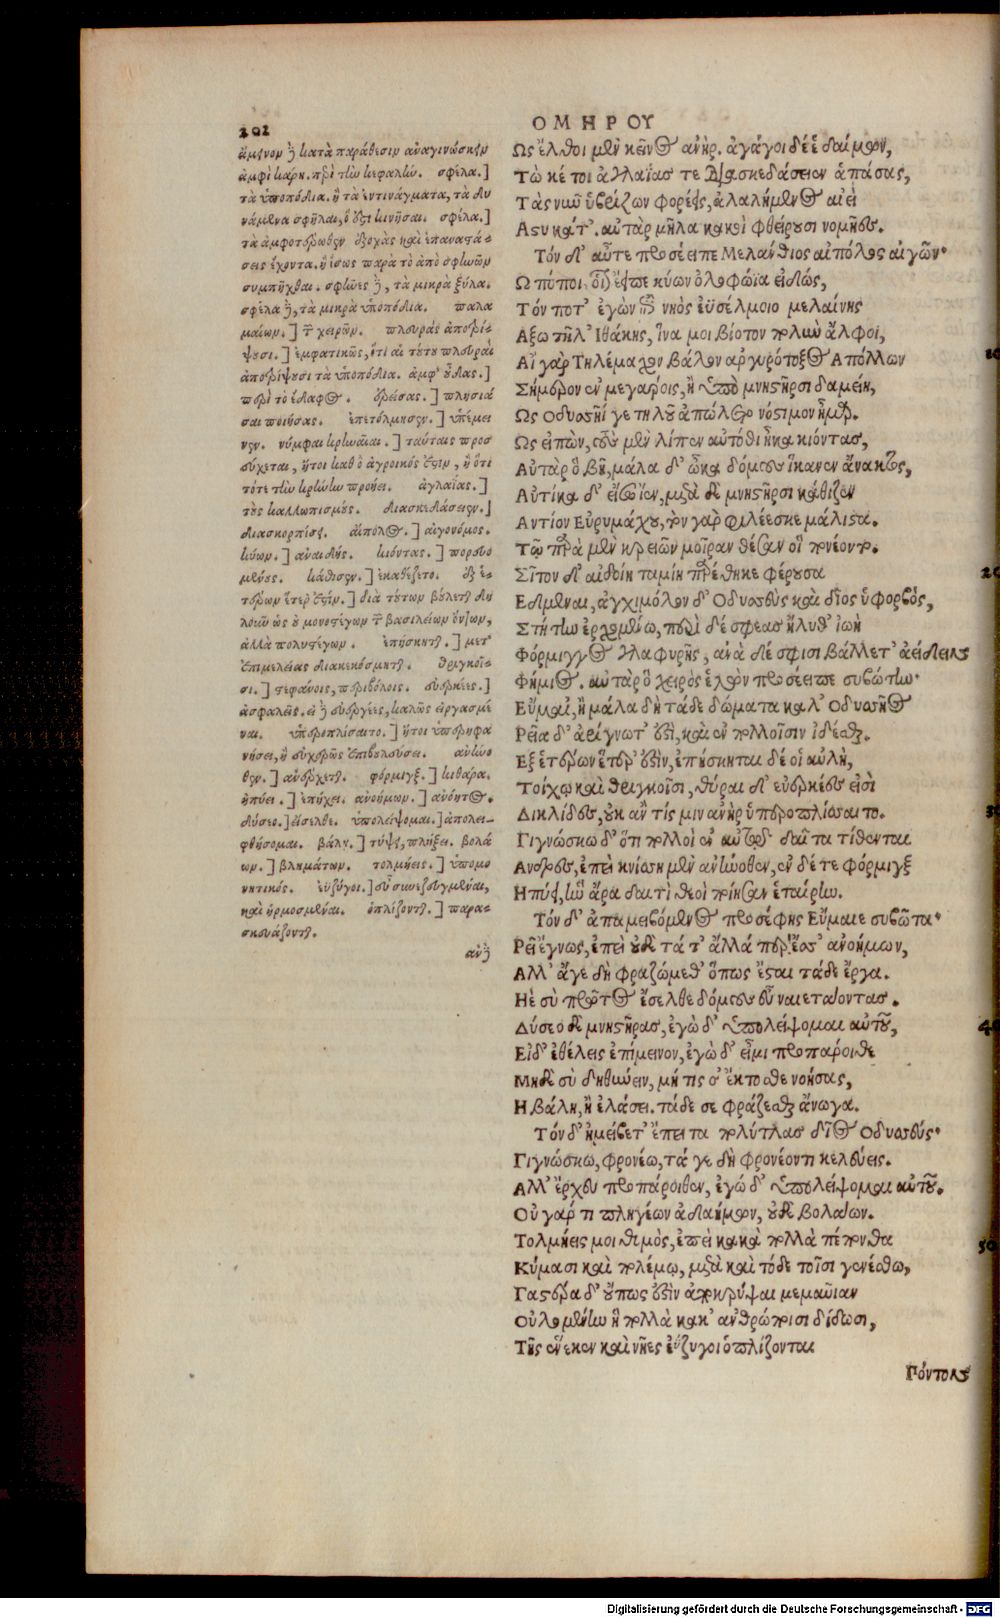 202
ΟΜΗΡΟΥ
ἄμεινον δὲ κατὰ παράθεσιν ἀναγινώσκειν
ἀμφὶ κάρη. περὶ τὴν κεφαλήν. σφέλα.]
τὰ ὑποπόδια. ἢ τὰ ἐντινάγματα, τὰ δυ
νάμενα σφῆλαι, ὅ ἐστι κινῆσαι. σφέλα.]
τὰ ἀμφοτέρωθεν ἐξοχὰς καὶ ἐπαναστά-
σεις ἔχοντα. ἢ ἴσως παρὰ τὸ ἀπὸ σφηνῶν
συμπῆχθαι. σφῆνες δὲ, τὰ μικρὰ ξύλα.
σφέλα δὲ, τὰ μικρὰ ὑποπόδια. παλα
μάων.] τῶν χειρῶν. πλευρὰς ἀποτρί-
ψουσι.] ἐμφατικῶς, ὅτι αἱ τούτου πλευραὶ
ἀποτρίψουσι τὰ ὑποπόδια. ἀμφ' οὖδας.]
περὶ τὸ ἔδαφος. ἐρείσας.] πλησιά
σαι ποιήσας. ἐπετόλμησεν.] ὑπέμει
νεν. νύμφαι κρηναῖαι.] ταύταις προσ
εύχεται, ἤτοι καθ' ὃ ἀγροικός ἐστιν, ἢ ὅτι
τότε τὴν κρήνην προῄει. ἀγλαΐας.]
τοὺς καλλωπισμούς. διασκεδάσειεν.]
διασκορπίσει. αἰπόλος.] αἰγονόμος.
κύων.] ἀναιδής. κιόντας.] πορευο
μένους. κάθισεν.] ἐκαθέζετο. ἐξ ἑ-
τέρων ἕτερ' ἐστίν.] διὰ τούτων βούλεται δη
λοῦν ὡς οὐ μονοστέγων τῶν βασιλείων ὄντων,
ἀλλὰ πολυστέγων. ἐπήσκηται.] μετ'
ἐπιμελείας διακεκόσμηται. θριγκοῖ-
σι.] στεφάνοις, περιβόλοις. εὐερκέες.]
ἀσφαλεῖς. εἰ δὲ εὐεργέες, καλῶς εἰργασμέ
ναι. ὑπεροπλίσαιτο.] ἤτοι ὑπερηφα
νήσει, ἢ εὐχερῶς ἐπιβουλεύσει. ἀνήνο
θεν.] ἀνέρχεται. φόρμιγξ.] κιθάρα.
ἠπύει.] ἐπήχει. ἀνοήμων.] ἀνόητος.
δύσεο.] εἴσελθε. ὑπολείψομαι.] ἀπολει-
φθήσομαι. βάλῃ.] τύψει, πλήξει. βολά
ων.] βλημάτων. τολμήεις.] ὑπομο
νητικός. εὔζυγοι.] εὖ συνεζευγμέναι,
καὶ ἡρμοσμέναι. ὁπλίζονται.] παρα-
σκευάζονται.
αὐτὰρ
Ως ἔλθοι μὲν κεῖνος ἀνήρ. ἀγάγοι δέ ἑ δαίμων,
Τῷ κέ τοι ἀγλαΐας τε διασκεδάσειεν ἁπάσας,
Τὰς νῦν ὑβρίζων φορέεις, ἀλαλήμενος αἰεὶ
Αστυ κάτ'. αὐτὰρ μῆλα κακοὶ φθείρουσι νομῆες.
Τόν δ' αὖτε προσέειπε Μελάνθιος αἰπόλος αἰγῶν·
Ω πόποι, οἷον ἔειπε κύων ὀλοφώϊα εἰδώς,
Τόν ποτ' ἐγὼν ἐπὶ νηὸς ἐϋσέλμοιο μελαίνης
Αξω τῆλ' Ιθάκης, ἵνα μοι βίοτον πολὺν ἄλφοι,
Αἲ γὰρ Τηλέμαχον βάλοι ἀργυρότοξος Απόλλων
Σήμερον ἐν μεγάροις, ἢ ὑπὸ μνηστῆρσι δαμείη,
Ως Οδυσῆΐ γε τηλοῦ ἀπώλετο νόστιμον ἦμαρ.
Ως εἰπὼν, τοὺς μὲν λίπεν αὐτόθι ἦκα κιόντας,
Αὐτὰρ ὃ βῆ, μάλα δ' ὦκα δόμους ἵκανεν ἄνακτος,
Αὐτίκα δ' εἴσω ἴεν, μετὰ δὲ μνηστῆρσι κάθιζεν
Αντίον Εὐρυμάχου, τὸν γὰρ φιλέεσκε μάλιστα.
Τῷ πάρα μὲν κρειῶν μοῖραν θέσαν οἳ πονέοντο.
Σῖτον δ' αἰδοίη ταμίη παρέθηκε φέρουσα
Εδμεναι, ἀγχίμολον δ' Οδυσεὺς καὶ δῖος ὑφορβός,
Στήτην ἐρχομένω, περὶ δέ σφεας ἤλυθ' ἰωὴ
Φόρμιγγος γλαφυρῆς, ἀνὰ δέ σφισι βάλλετ' ἀείδειν
Φήμιος. αὐτὰρ ὃ χειρὸς ἑλὼν προσέειπε συβώτην·
Εὔμαι', ἦ μάλα δὴ τάδε δώματα κάλ' Οδυσῆος
Ρεῖα δ' ἀρίγνωτ' ἐστὶ, καὶ ἐν πολλοῖσιν ἰδέσθαι.
Εξ ἑτέρων ἕτερ' ἐστὶν, ἐπήσκηται δέ οἱ αὐλὴ,
Τοίχῳ καὶ θριγκοῖσι, θύραι δ' εὐερκέες εἰσὶ
Δικλίδες, οὐκ ἄν τίς μιν ἀνὴρ ὑπεροπλίσαιτο.
Γιγνώσκω δ' ὅτι πολλοὶ ἐν αὐτῷ δαῖτα τίθενται
Ανδρες, ἐπεὶ κνίσση μὲν ἀνήνοθεν, ἐν δέ τε φόρμιγξ
Ηπύει, ἣν ἄρα δαιτὶ θεοὶ ποίησαν ἑταίρην.
Τόν δ' ἀπαμειβόμενος προσέφης Εὔμαιε συβῶτα·
Ρεῖ' ἔγνως, ἐπεὶ οὐδὲ τά τ' ἄλλά περ ἔσσ' ἀνοήμων,
Αλλ' ἄγε δὴ φραζώμεθ' ὅπως ἔσται τάδε ἔργα.
Ηὲ σὺ πρῶτος ἔσελθε δόμους εὖ ναιετάοντας.
Δύσεο δὲ μνηστῆρας, ἐγὼ δ' ὑπολείψομαι αὐτοῦ,
Εἰ δ' ἐθέλεις ἐπίμεινον, ἐγὼ δ' εἶμι προπάροιθε
Μηδὲ σὺ δηθύνειν, μή τις σ' ἔκτοσθε νοήσας,
Η βάλῃ, ἢ ἐλάσει. τάδε σε φράζεσθαι ἄνωγα.
Τόν δ' ἠμείβετ' ἔπειτα πολύτλας δῖος Οδυσεύς·
Γιγνώσκω, φρονέω, τά γε δὴ φρονέοντι κελεύεις.
Αλλ' ἔρχευ προπάροιθεν, ἐγώ δ' ὑπολείψομαι αὐτοῦ.
Οὐ γάρ τι πληγέων ἀδαήμων, οὐδὲ βολάων.
Τολμήεις μοι θυμὸς, ἐπεὶ κακὰ πολλὰ πέπονθα
Κύμασι καὶ πολέμῳ, μετὰ καὶ τόδε τοῖσι γενέσθω,
Γαστέρα δ' οὔπως ἐστὶν ἀποκρύψαι μεμαῦιαν
Οὐλομένην ἣ πολλὰ κάκ' ἀνθρώποισι δίδωσι,
Τῆς ἕνεκεν καὶ νῆες ἐΰζυγοι ὁπλίζονται
Πόντον
10
20
30
40
50
Digitalisierung gefördert durch die Deutsche Forschungsgemeinschaft - DFG